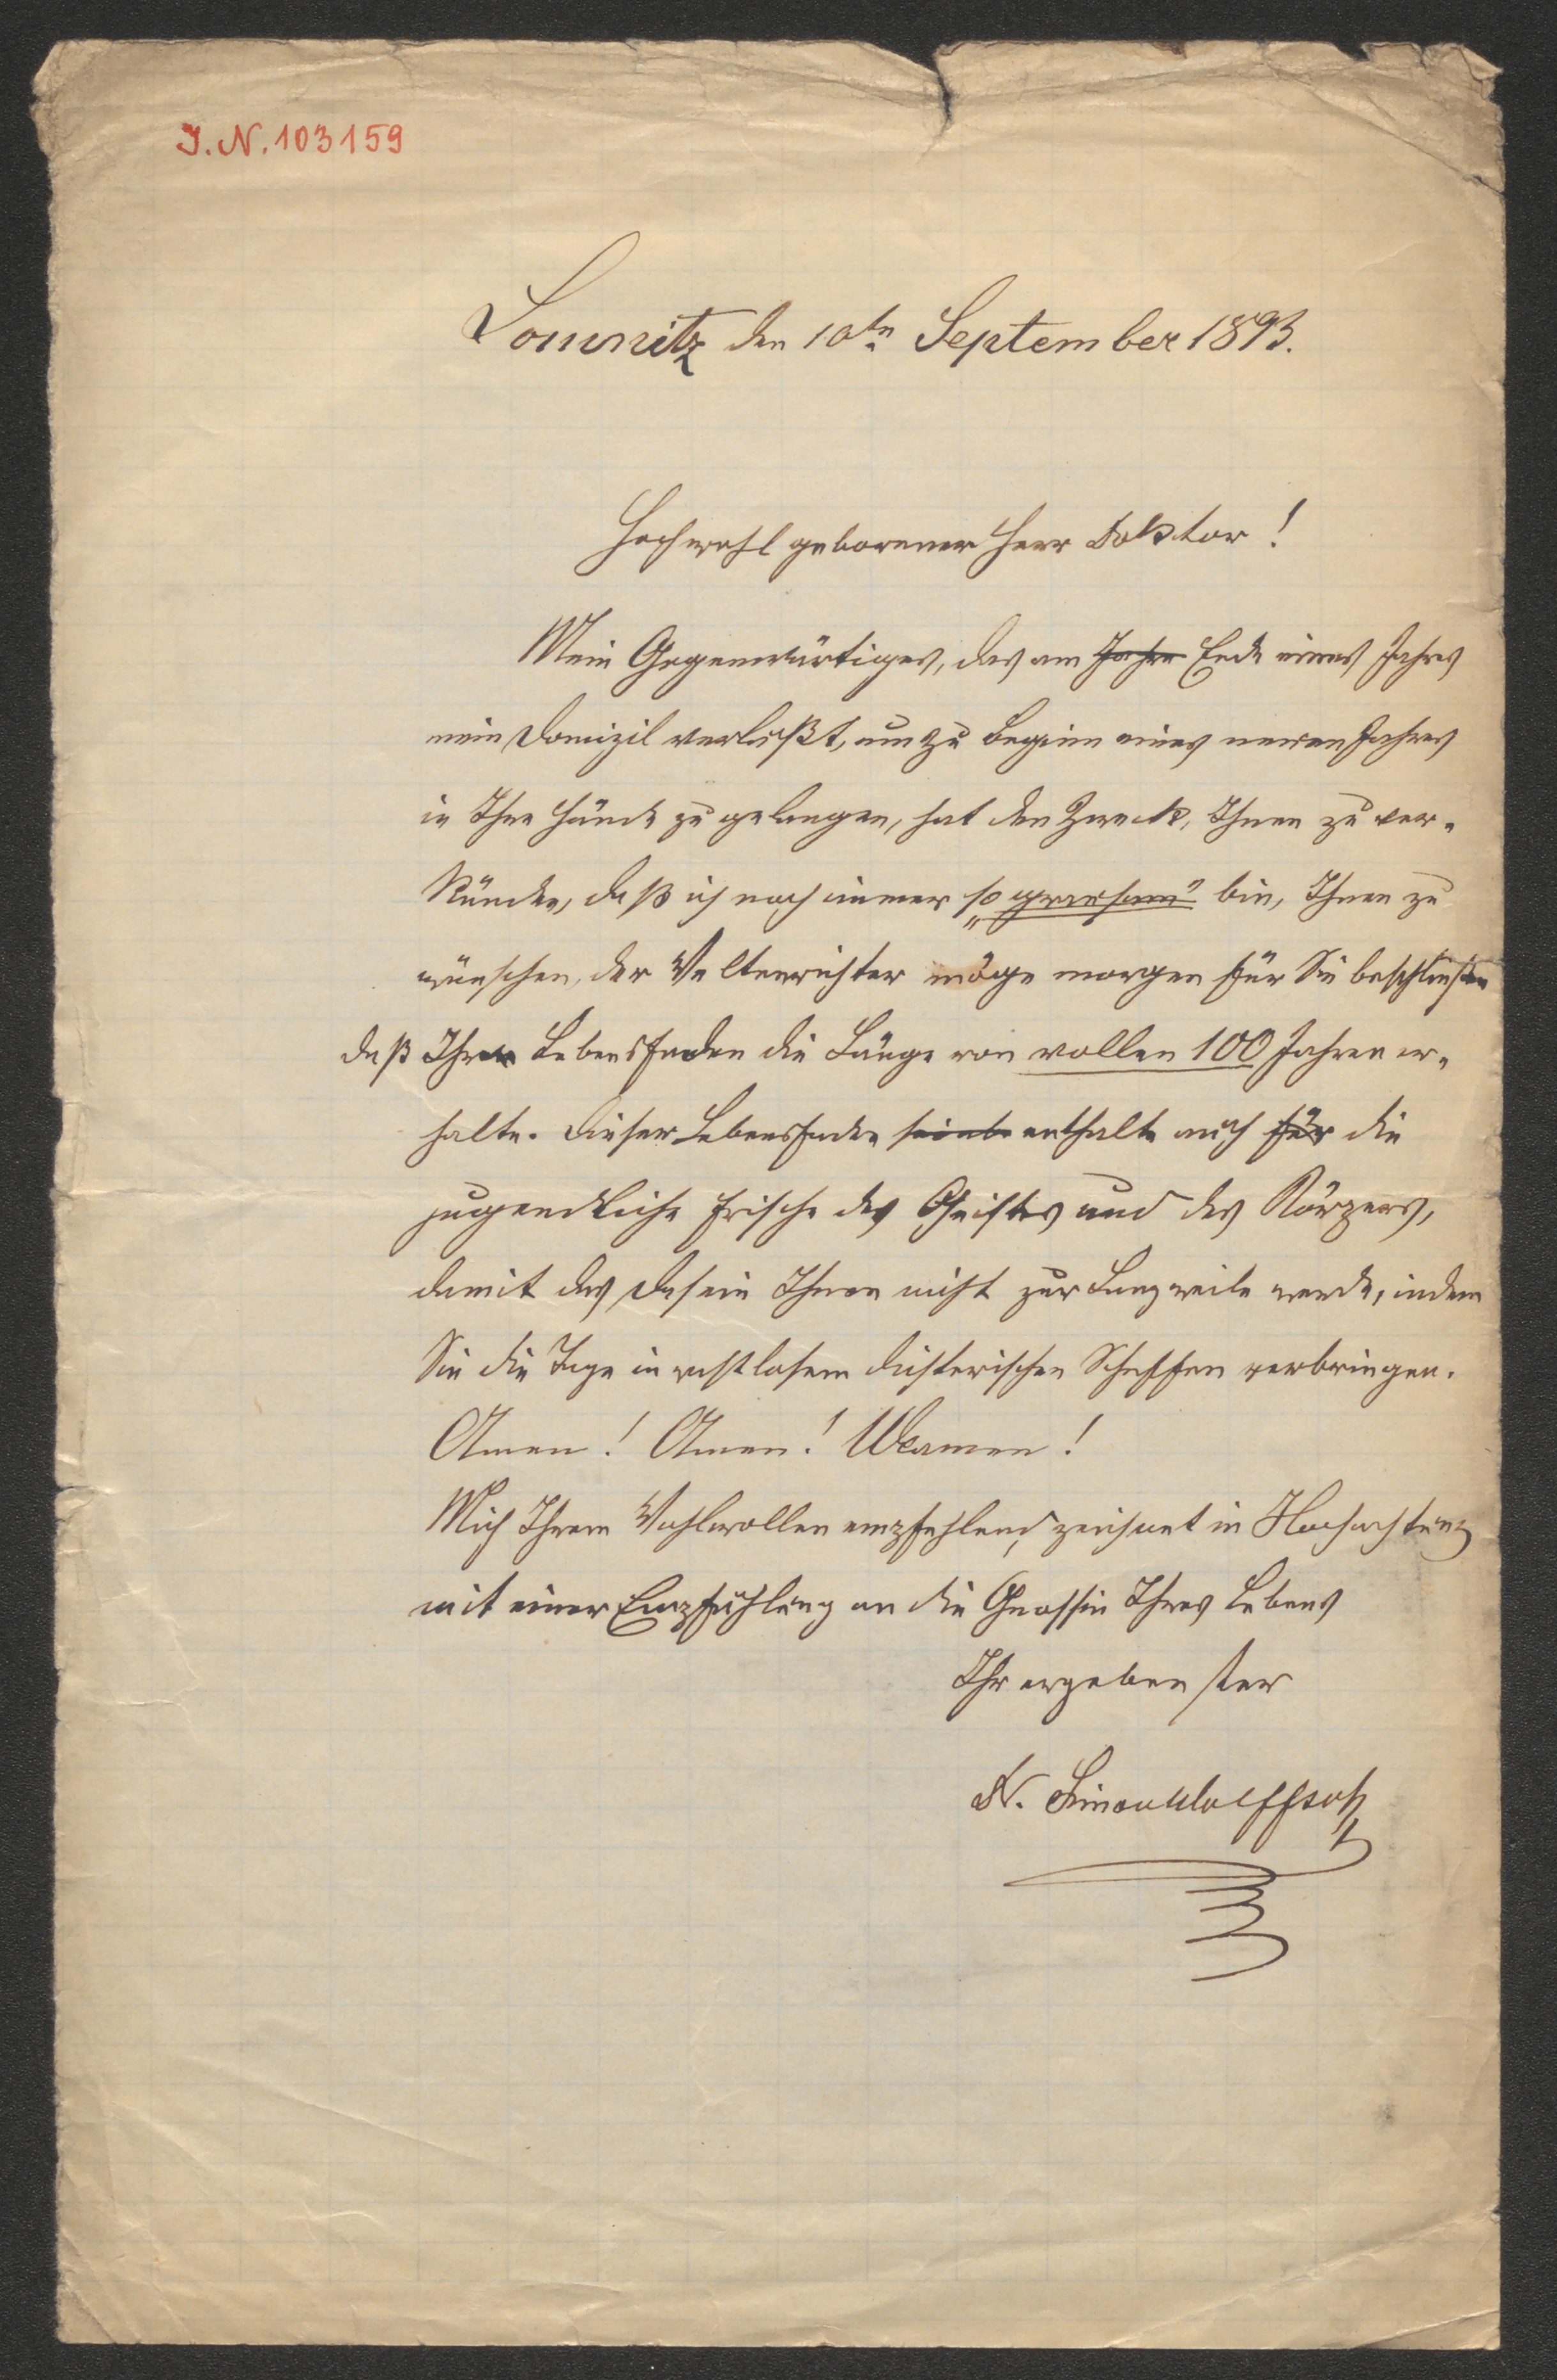 I.N. 103159
Lomnitz den 10tn September 1893.
Hochwohlgeborener Herr Doktor!
Mein Gegenwärtiges, das am Jahre Ende eines Jahres
mein Domizil verläßt, um zu Beginn eines neuen Jahres
in Ihre Hände zu gelangen, hat den Zweck, Ihnen zu ver-
künden, daß ich noch immer „so grausam“ bin, Ihnen zu
wünschen, der Weltenrichter möge morgen für Sie beschließen
daß Ihr Lebensfaden die Länge von vollen 100 Jahren er-
halte. Dieser Lebensfaden enthalte auch für die
jugendliche Frische des Geistes und des Körpers,
damit das Dasein Ihnen nicht zur Langweile werde, indem
Sie die Tage in rastlosem dichterischen Schaffen verbringen.
Amen! Amen! Wamen!
Mich Ihrem Wohlwollen empfehlend, zeichnet in Hochachtung
mit einer Empfehlung an die Genossin Ihres Lebens
Ihr ergebenster
Dr. Simon Wolffsohn